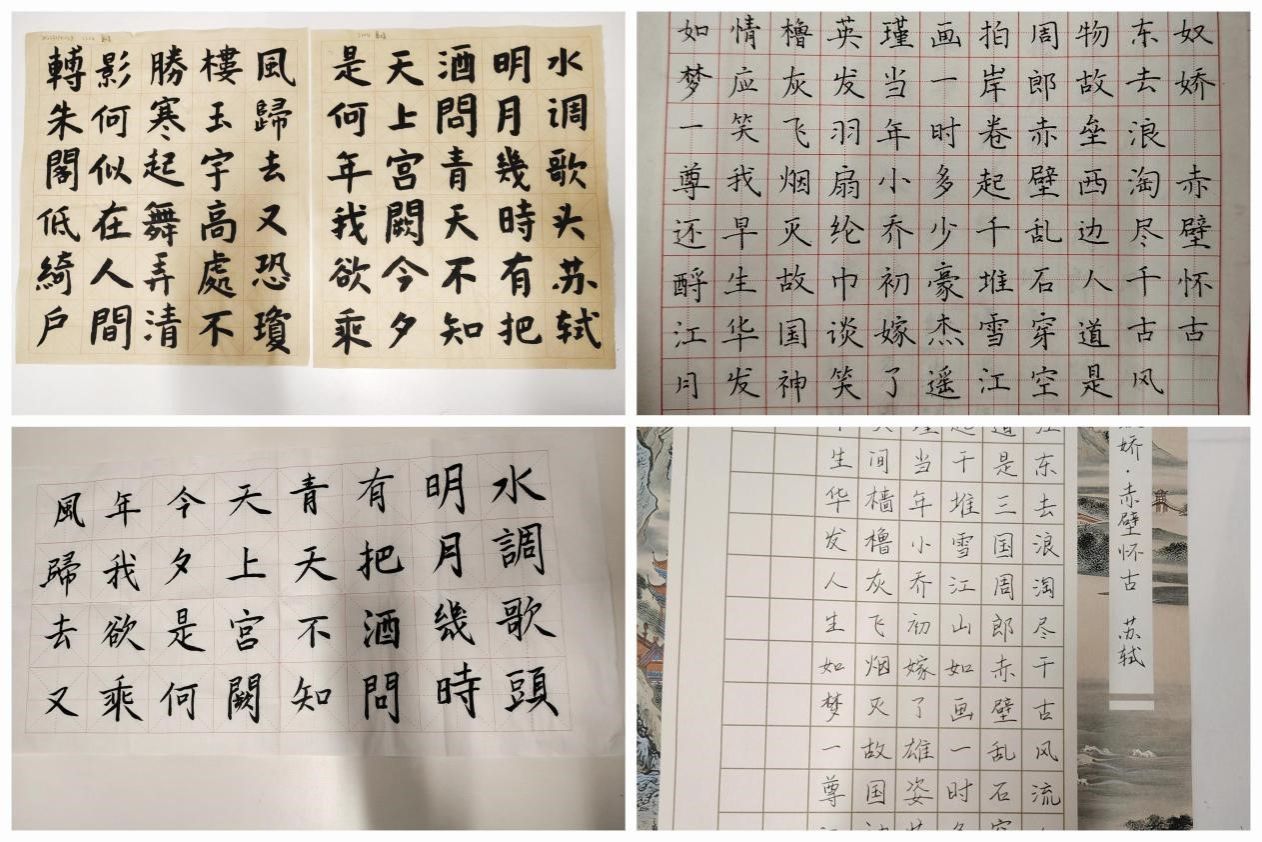 水调歌头苏轼
明月幾時有把
酒問青天不知
天上宫闕今夕
是何年我欲乘
風歸去又恐瓊
樓玉宇高處不
勝寒起舞弄清
影何似在人間
轉朱閣低綺戶
奴娇 赤壁怀古
东去浪淘尽千古风
物故垒西边人道是
周郎赤壁乱石穿空
拍岸卷起千堆雪江
画一时多少豪杰遥
瑾当年小乔初嫁了
英发羽扇纶巾谈笑
橹灰飞烟灭故国神
情应笑我早生华发
如梦一尊还酹江月
水調歌頭
明月幾時
有把酒問
青天不知
天上宫闕
今夕是何
年我欲乘
風歸去又
娇·赤壁怀古 苏轼
东去浪淘尽千古风流
是三国周郎赤壁乱石
千堆雪江山如画一时
当年小乔初嫁了雄姿
间樯橹灰飞烟灭故国
生华发人生如梦一尊